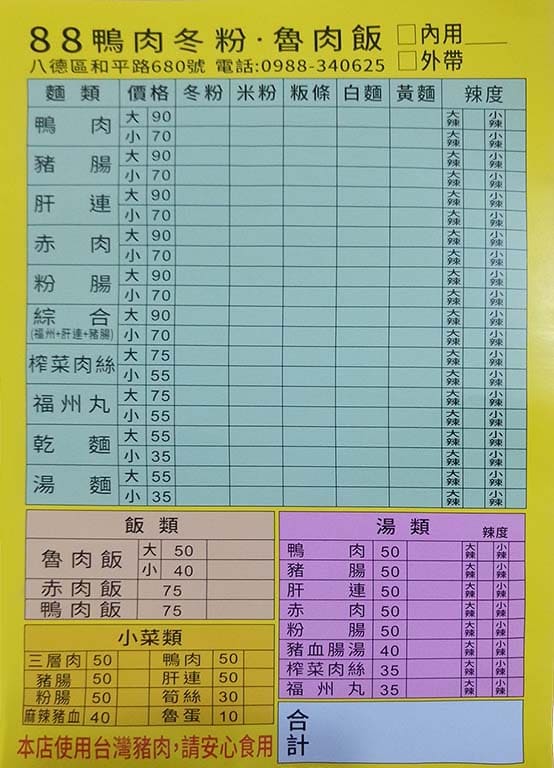 88鴨肉冬粉·魯肉飯 □內用
八德區和平路680號 電話:0988-340625 □外帶
麵類 價格 冬粉 米粉 粄條 白麵 黃麵 辣度
鴨肉 大 90 大辣 小辣
小 70 大辣 小辣
豬腸 大 90 大辣 小辣
小 70 大辣 小辣
肝連 大 90 大辣 小辣
小 70 大辣 小辣
赤肉 大 90 大辣 小辣
小 70 大辣 小辣
粉腸 大 90 大辣 小辣
小 70 大辣 小辣
綜合 大 90 大辣 小辣
(福州+肝連+豬腸) 小 70 大辣 小辣
榨菜肉絲 大 75 大辣 小辣
小 55 大辣 小辣
福州丸 大 75 大辣 小辣
小 55 大辣 小辣
乾麵 大 55 大辣 小辣
小 35 大辣 小辣
湯麵 大 55 大辣 小辣
小 35 大辣 小辣
飯類
魯肉飯 大 50
小 40
赤肉飯 75
鴨肉飯 75
小菜類
三層肉 50 鴨肉 50
豬腸 50 肝連 50
粉腸 50 筍絲 30
麻辣豬血 40 魯蛋 10
湯類 辣度
鴨肉 50 大辣 小辣
豬腸 50 大辣 小辣
肝連 50 大辣 小辣
赤肉 50 大辣 小辣
粉腸 50 大辣 小辣
豬血腸湯 40 大辣 小辣
榨菜肉絲 35 大辣 小辣
福州丸 35 大辣 小辣
合計
本店使用台灣豬肉,請安心食用